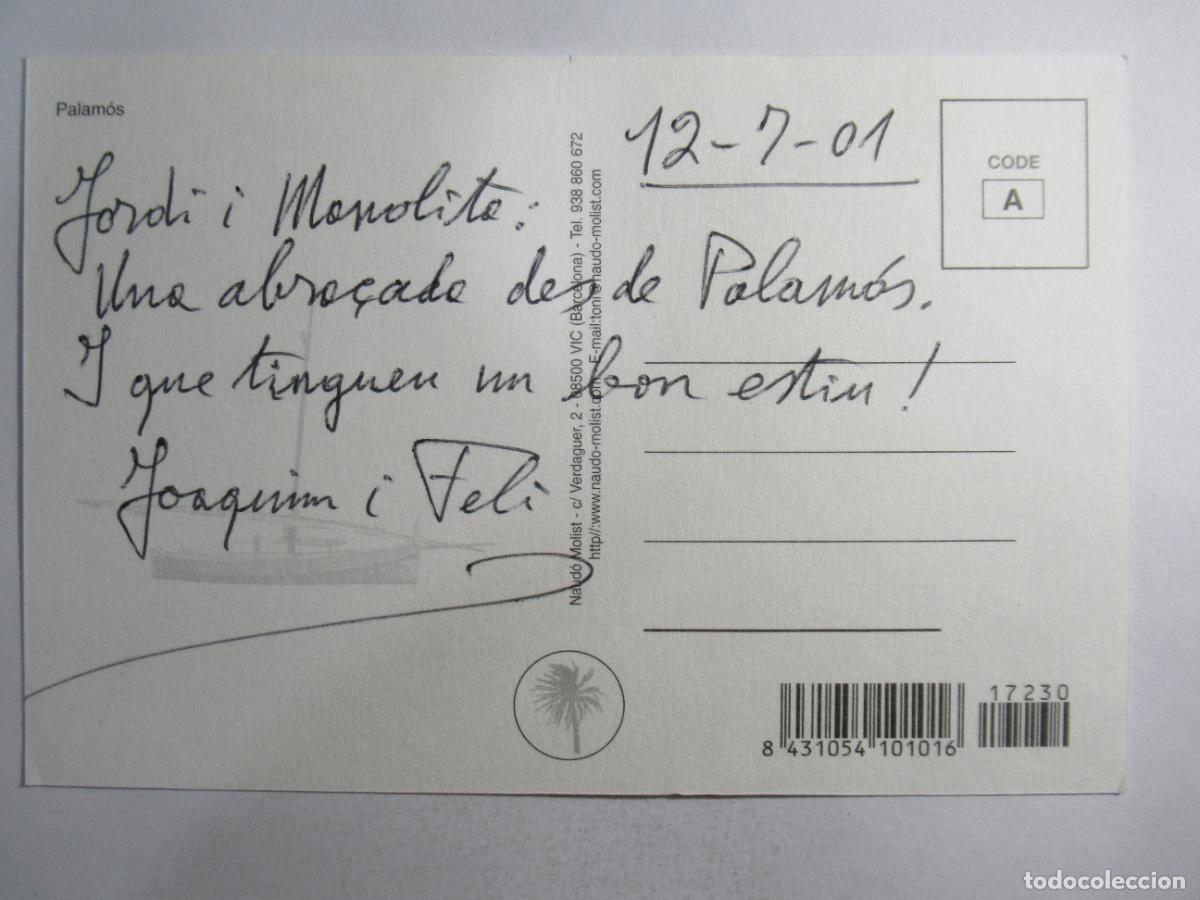 Palamós
12-7-01
CODE
A
Jordi i Manolita:
Una abraçada des de Palamós.
I que tingueu un bon estiu!
Joaquim i Feli
Naudó Molist - c/ Verdaguer, 2 - 08500 VIC (Barcelona) - Tel. 938 860 672
http//:www.naudo-molist.com E-mail:toni@naudo-molist.com
17230
8 431054 101016
todocoleccion